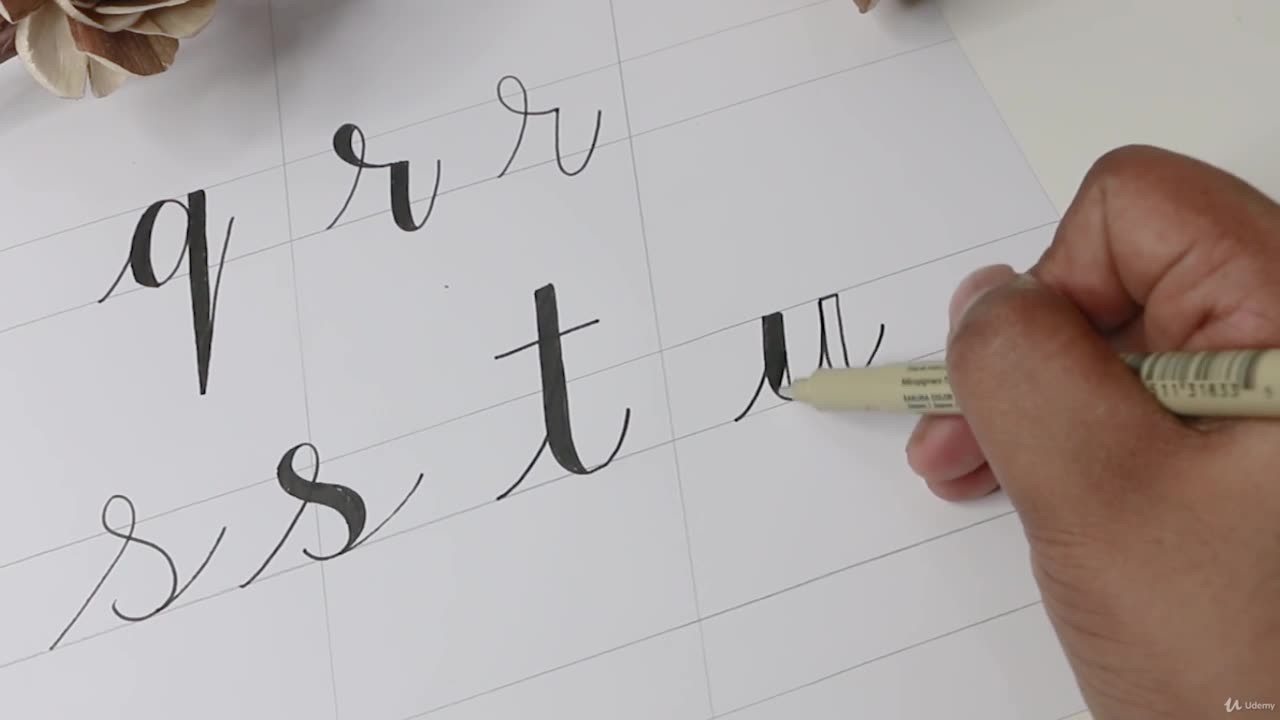 q r r
s s t u
Udemy